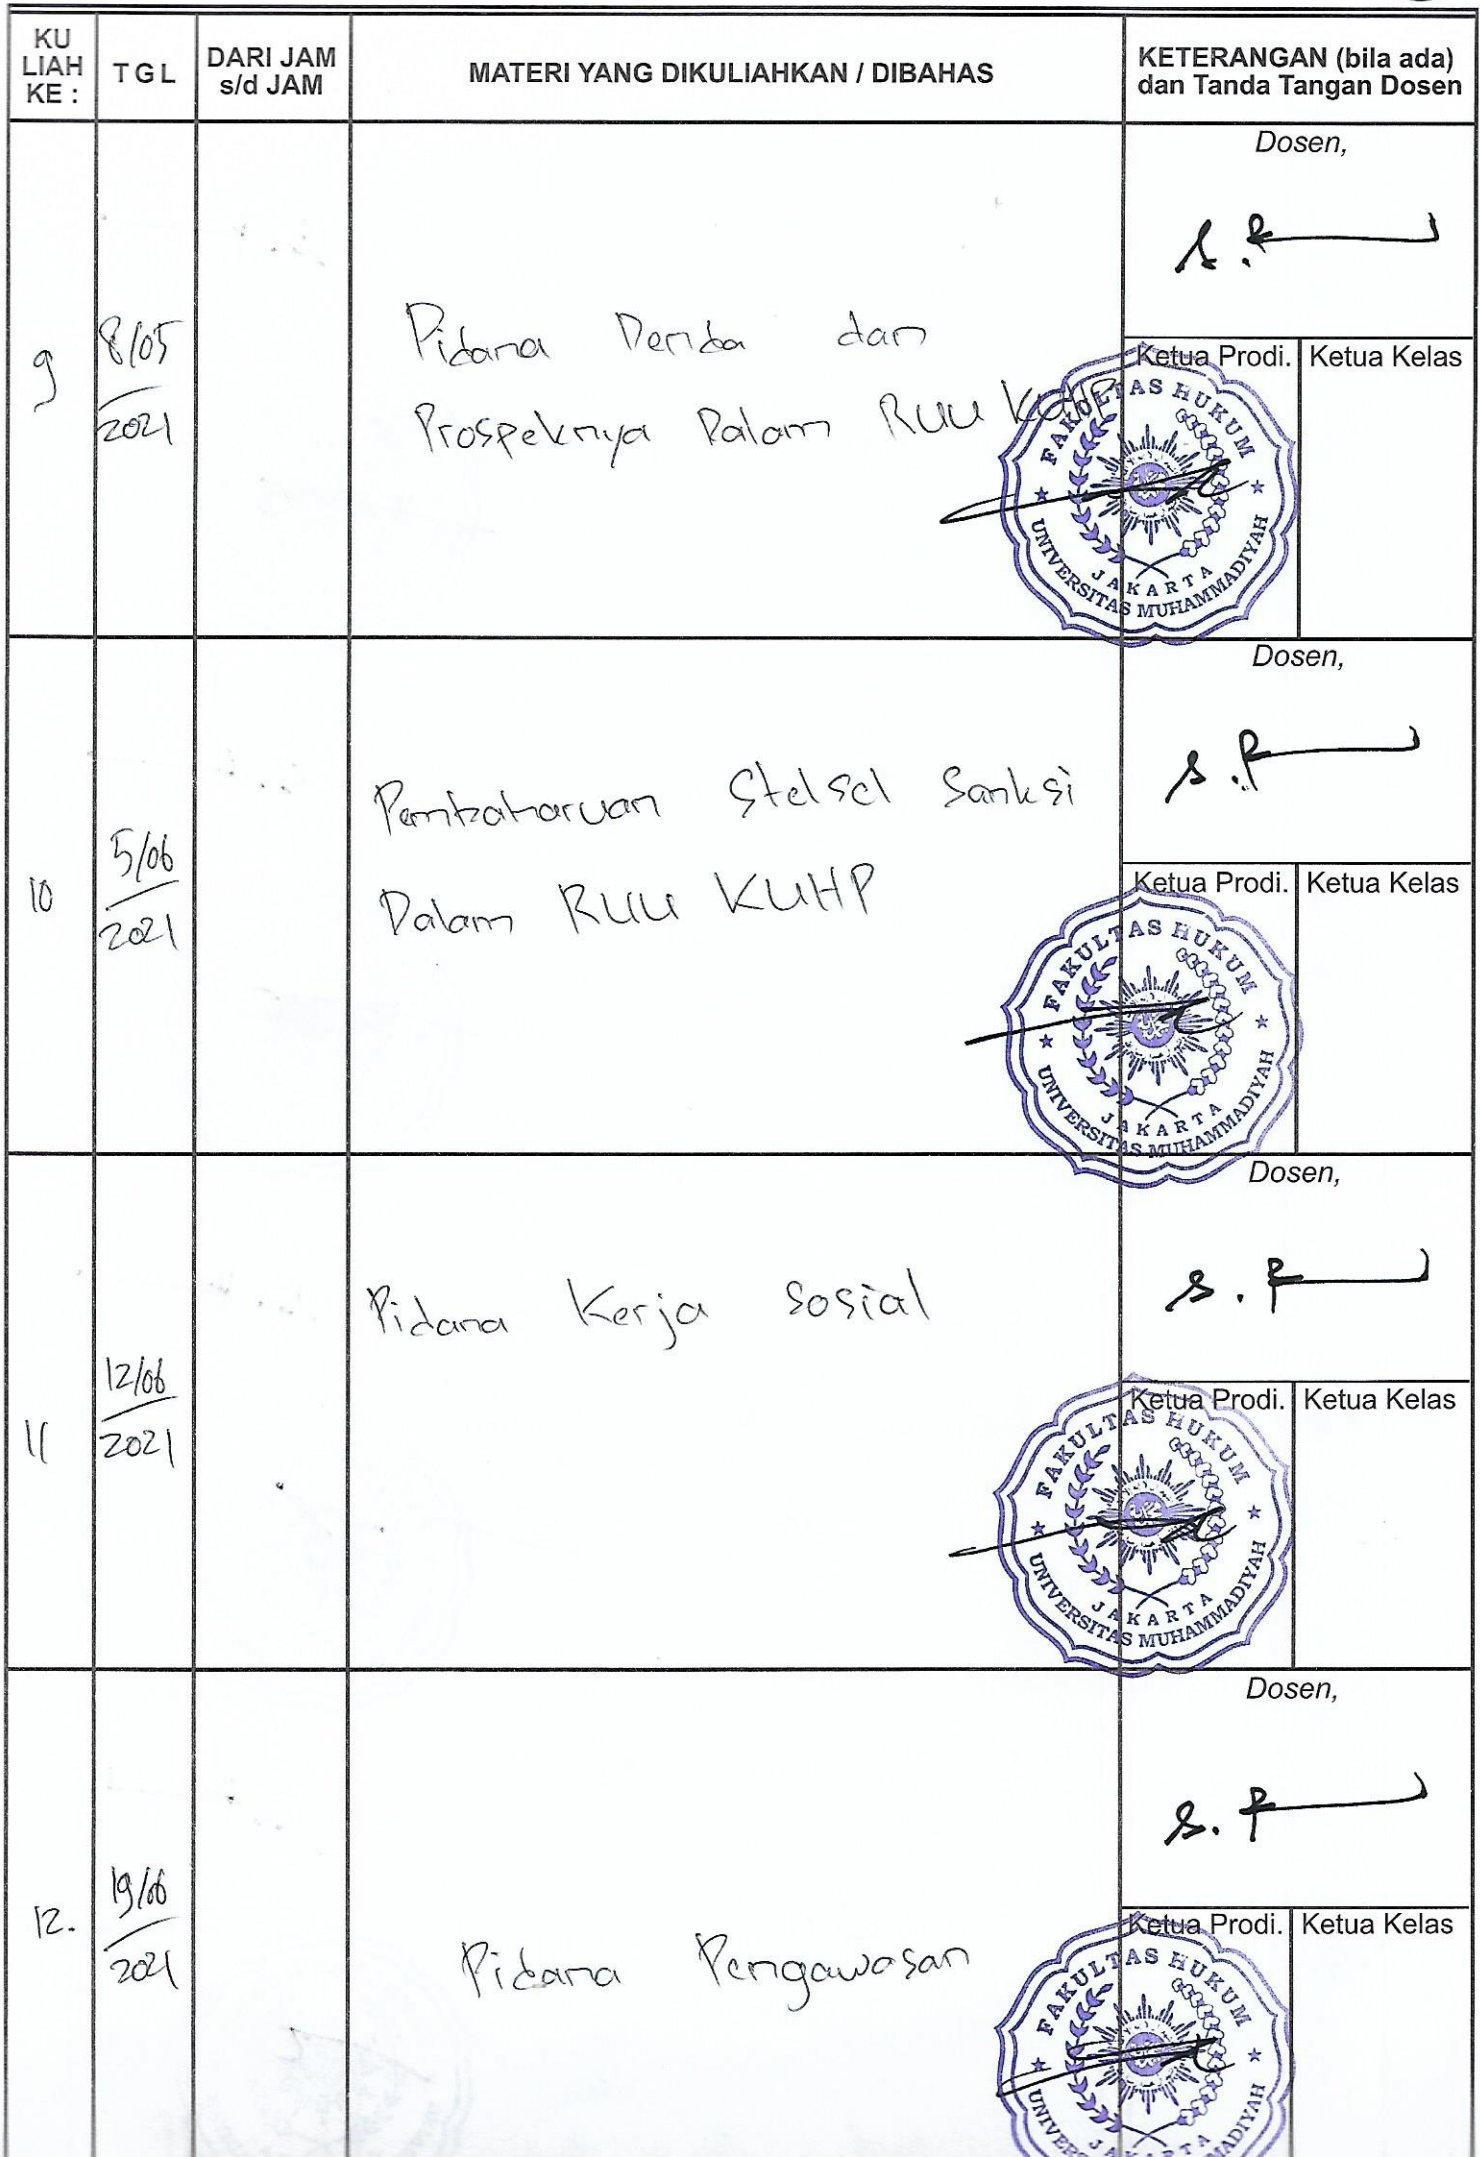 KU LIAH KE :
T G L
DARI JAM s/d JAM
MATERI YANG DIKULIAHKAN / DIBAHAS
KETERANGAN (bila ada) dan Tanda Tangan Dosen
9
8/05
2021
Pidana Denda dan
Prospeknya Dalam RUU KUHP
Dosen,
Ketua Prodi.
Ketua Kelas
FAKULTAS HUKUM
UNIVERSITAS MUHAMMADIYAH
JAKARTA
10
5/06
2021
Pembaharuan Stelsel Sanksi
Dalam RUU KUHP
Dosen,
Ketua Prodi.
Ketua Kelas
FAKULTAS HUKUM
UNIVERSITAS MUHAMMADIYAH
JAKARTA
11
12/06
2021
Pidana Kerja Sosial
Dosen,
Ketua Prodi.
Ketua Kelas
FAKULTAS HUKUM
UNIVERSITAS MUHAMMADIYAH
JAKARTA
12.
19/06
2021
Pidana Pengawasan
Dosen,
Ketua Prodi.
Ketua Kelas
FAKULTAS HUKUM